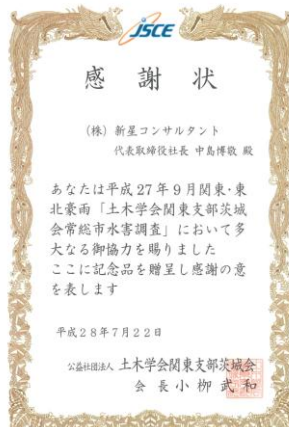 JSCE
感謝状
(株) 新星コンサルタント
代表取締役社長 中島博敬 殿
あなたは平成27年9月関東・東
北豪雨「土木学会関東支部茨城
会常総市水害調査」において多
大なる御協力を賜りました
ここに記念品を贈呈し感謝の意
を表します
平成28年7月22日
公益社団法人 土木学会関東支部茨城会
会長 小柳武和